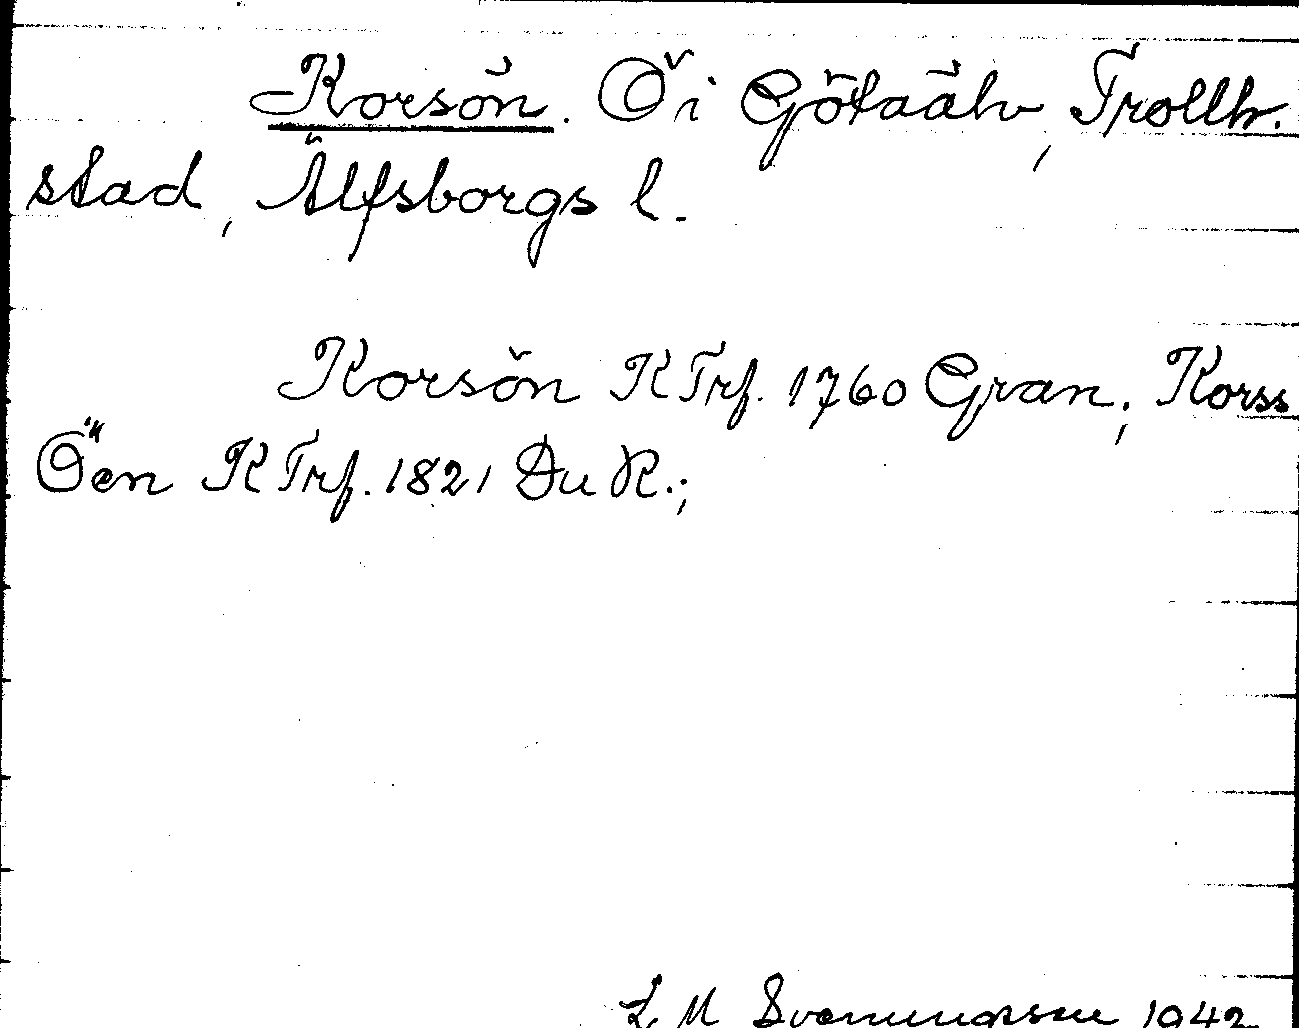 Korsön. Ö i Götaälv, Trollh.
stad, Älfsborgs l.
Korsön KTrf. 1760 Gran; Korss
Öen KTrf. 1821 Du R.;
L M Svenungsson 1942